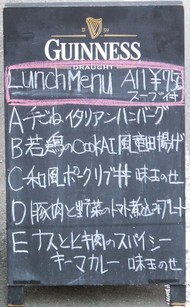 GUINNESS
DRAUGHT
Lunch Menu All ¥
スープ付
A 手ごねイタリアンハンバーグ
B 若鶏の 風竜田揚げ
C 和風ポークリブ丼 味玉のせ
D 豚肉と野菜のトマト煮込 プレート
E ナスとヒキ肉のスパイシー
キーマカレー 味玉のせ